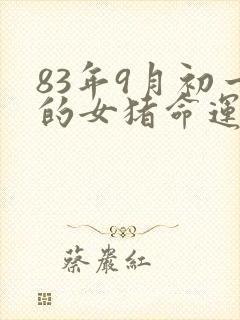 83年9月初一
的女猪命運
蔡嚴紅